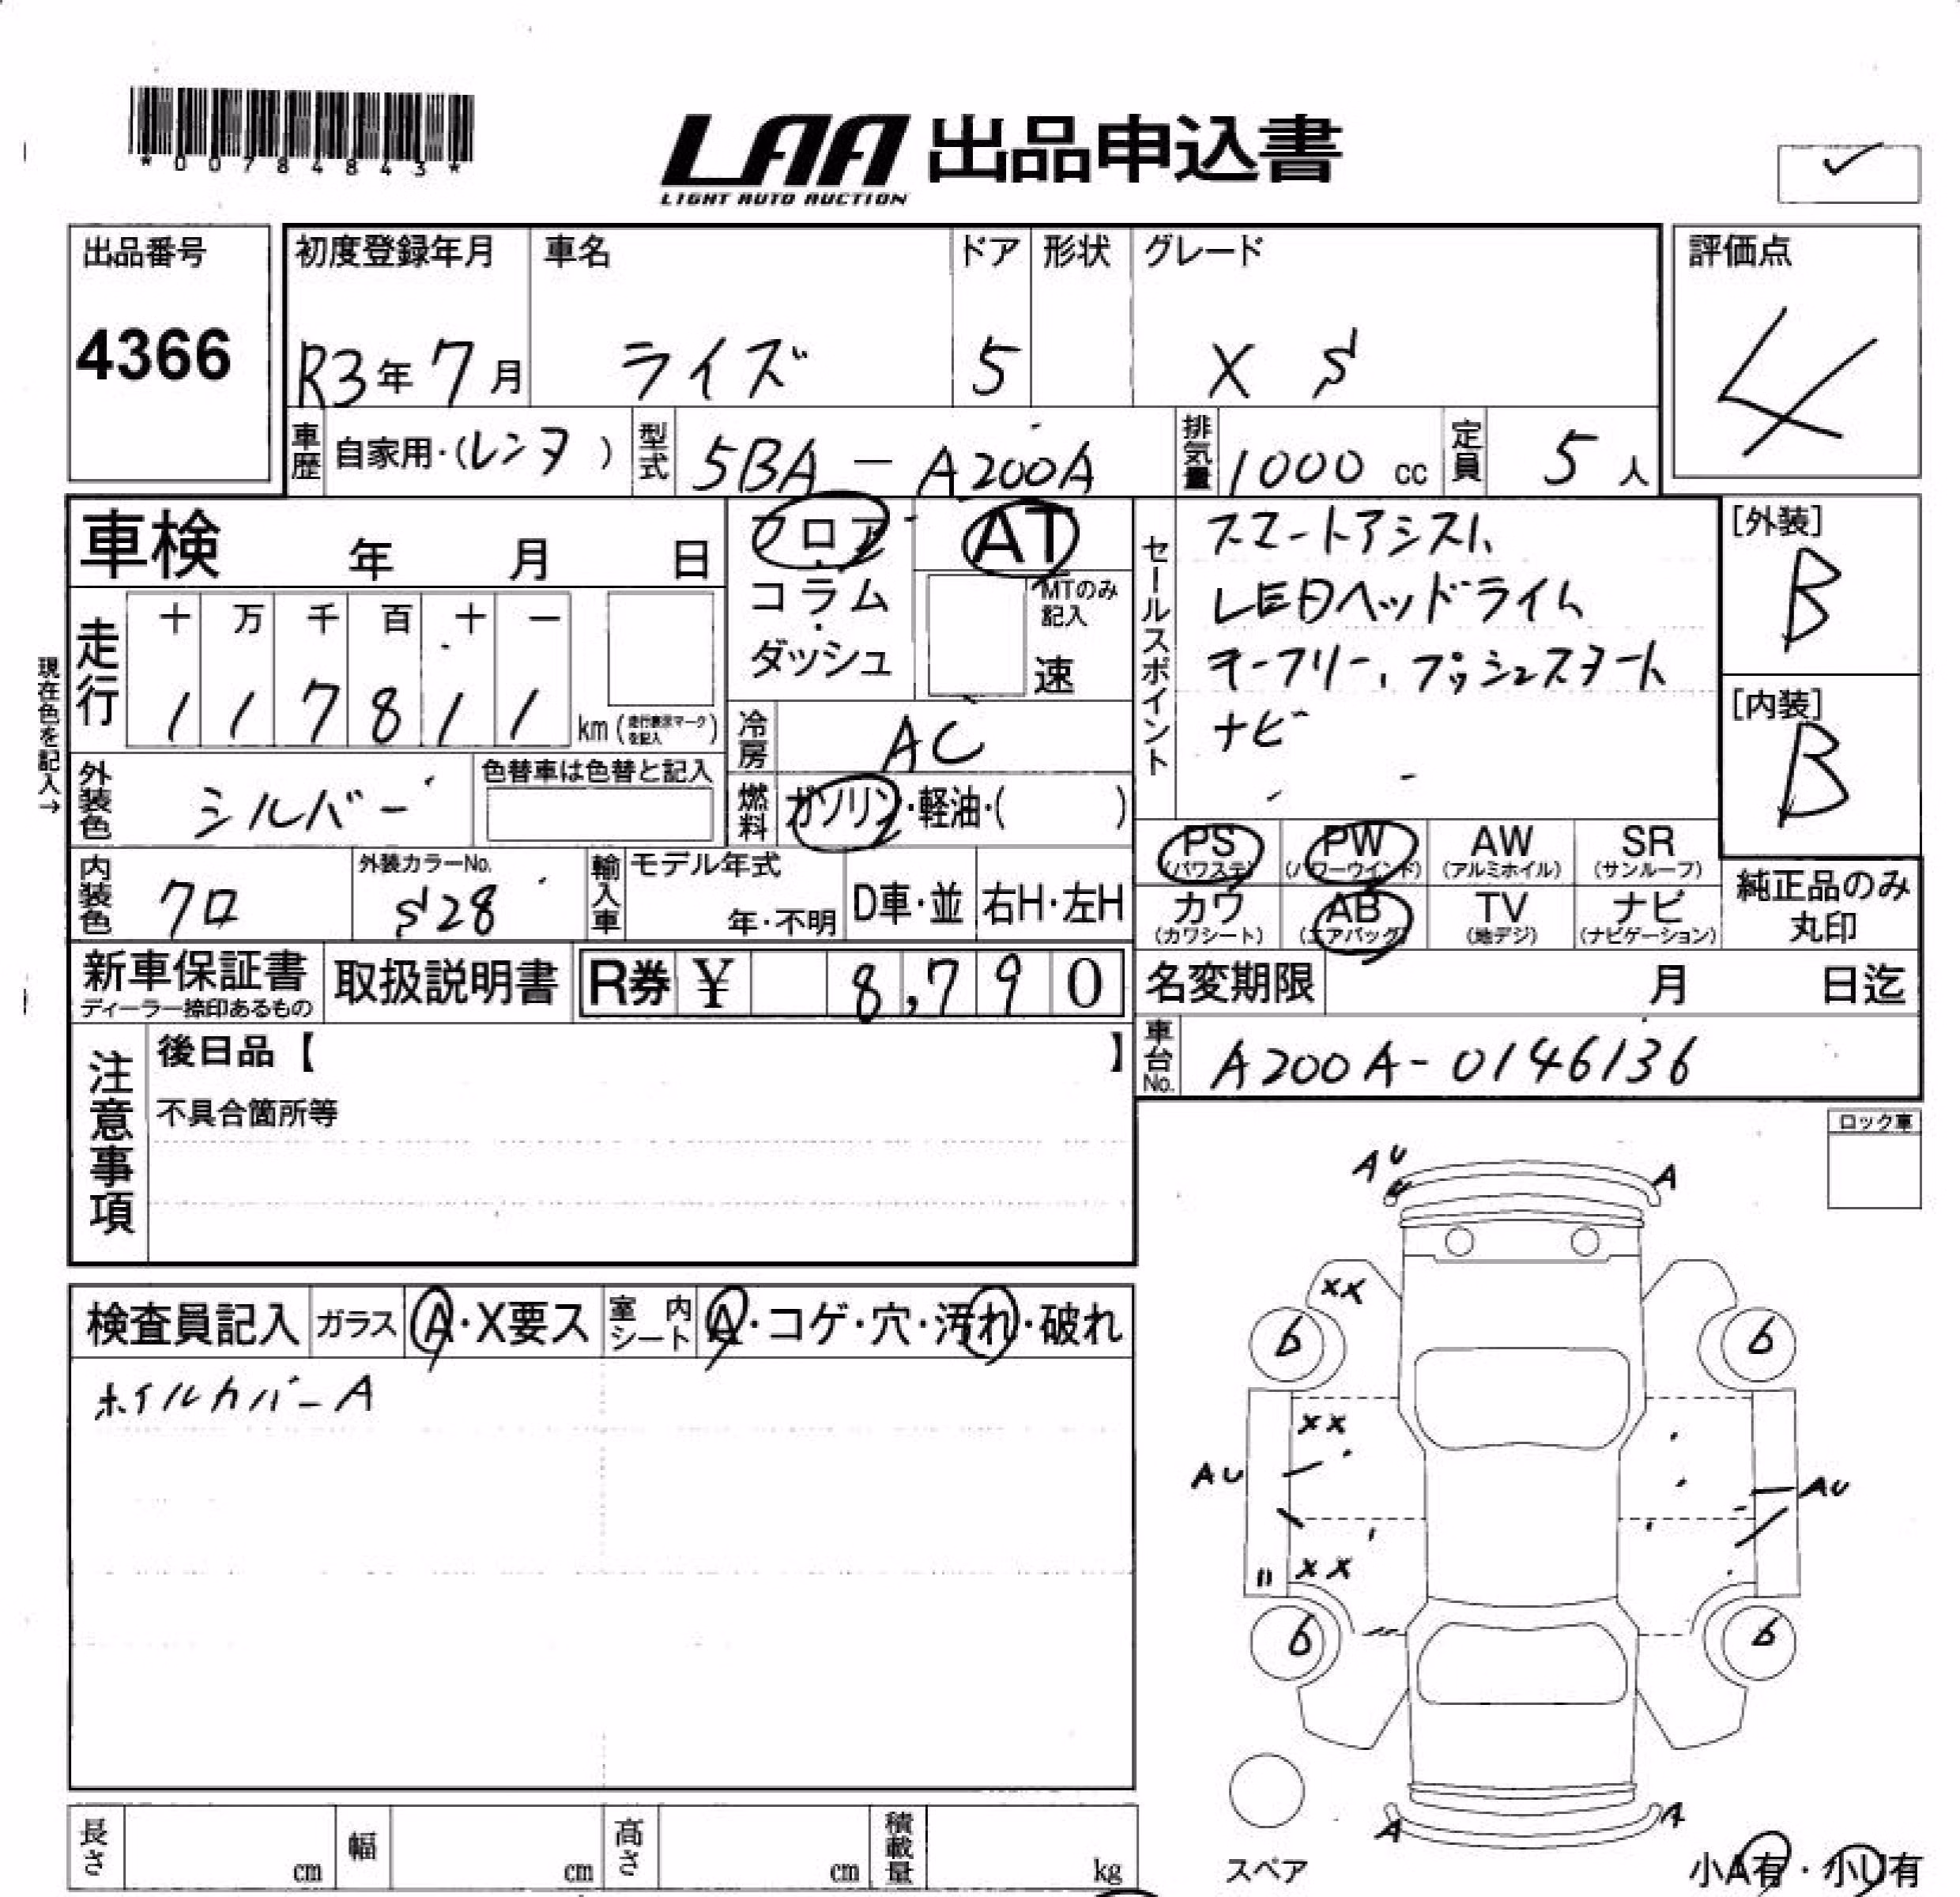 *00784843*
LAA 出品申込書
LIGHT AUTO AUCTION
出品番号
4366
初度登録年月 車名 ドア 形状 グレード
R3年 7月 ライズ 5 X S
評価点
4
車歴 自家用・(レンタ) 型式 5BA - A200A 排気量 1000 cc 定員 5人
車検 年 月 日
フロア・コラム・ダッシュ
AT
MTのみ記入
速
セールスポイント
スマートアシスト、
LEDヘッドライト、
キーフリー、プッシュスタート
ナビ
[外装]
B
[内装]
B
現在色を記入→
走行 十 万 千 百 十 一
1 1 7 8 1 1 km (走行表示マークを記入)
冷房 AC
外装色 シルバー 色替車は色替と記入
燃料 ガソリン・軽油・( )
PS (パワステ) PW (パワーウインド) AW (アルミホイル) SR (サンルーフ)
カワ (カワシート) AB (エアバッグ) TV (地デジ) ナビ (ナビゲーション)
純正品のみ丸印
内装色 クロ 外装カラーNo. S28 輸入車 モデル年式 年・不明 D車・並 右H・左H
新車保証書 ディーラー捺印あるもの 取扱説明書 R券 ¥ 8,790
名変期限 月 日迄
車台No. A200A-0146136
注意事項
後日品【 】
不具合箇所等
ロック車
検査員記入 ガラス A・X要ス 室内シート A・コゲ・穴・汚れ・破れ
ホイルカバーA
AU A
XX
6 6
XX
AU AU
XX
6 6
A A
スペア
小A有・小U有
長さ cm 幅 cm 高さ cm 積載量 kg